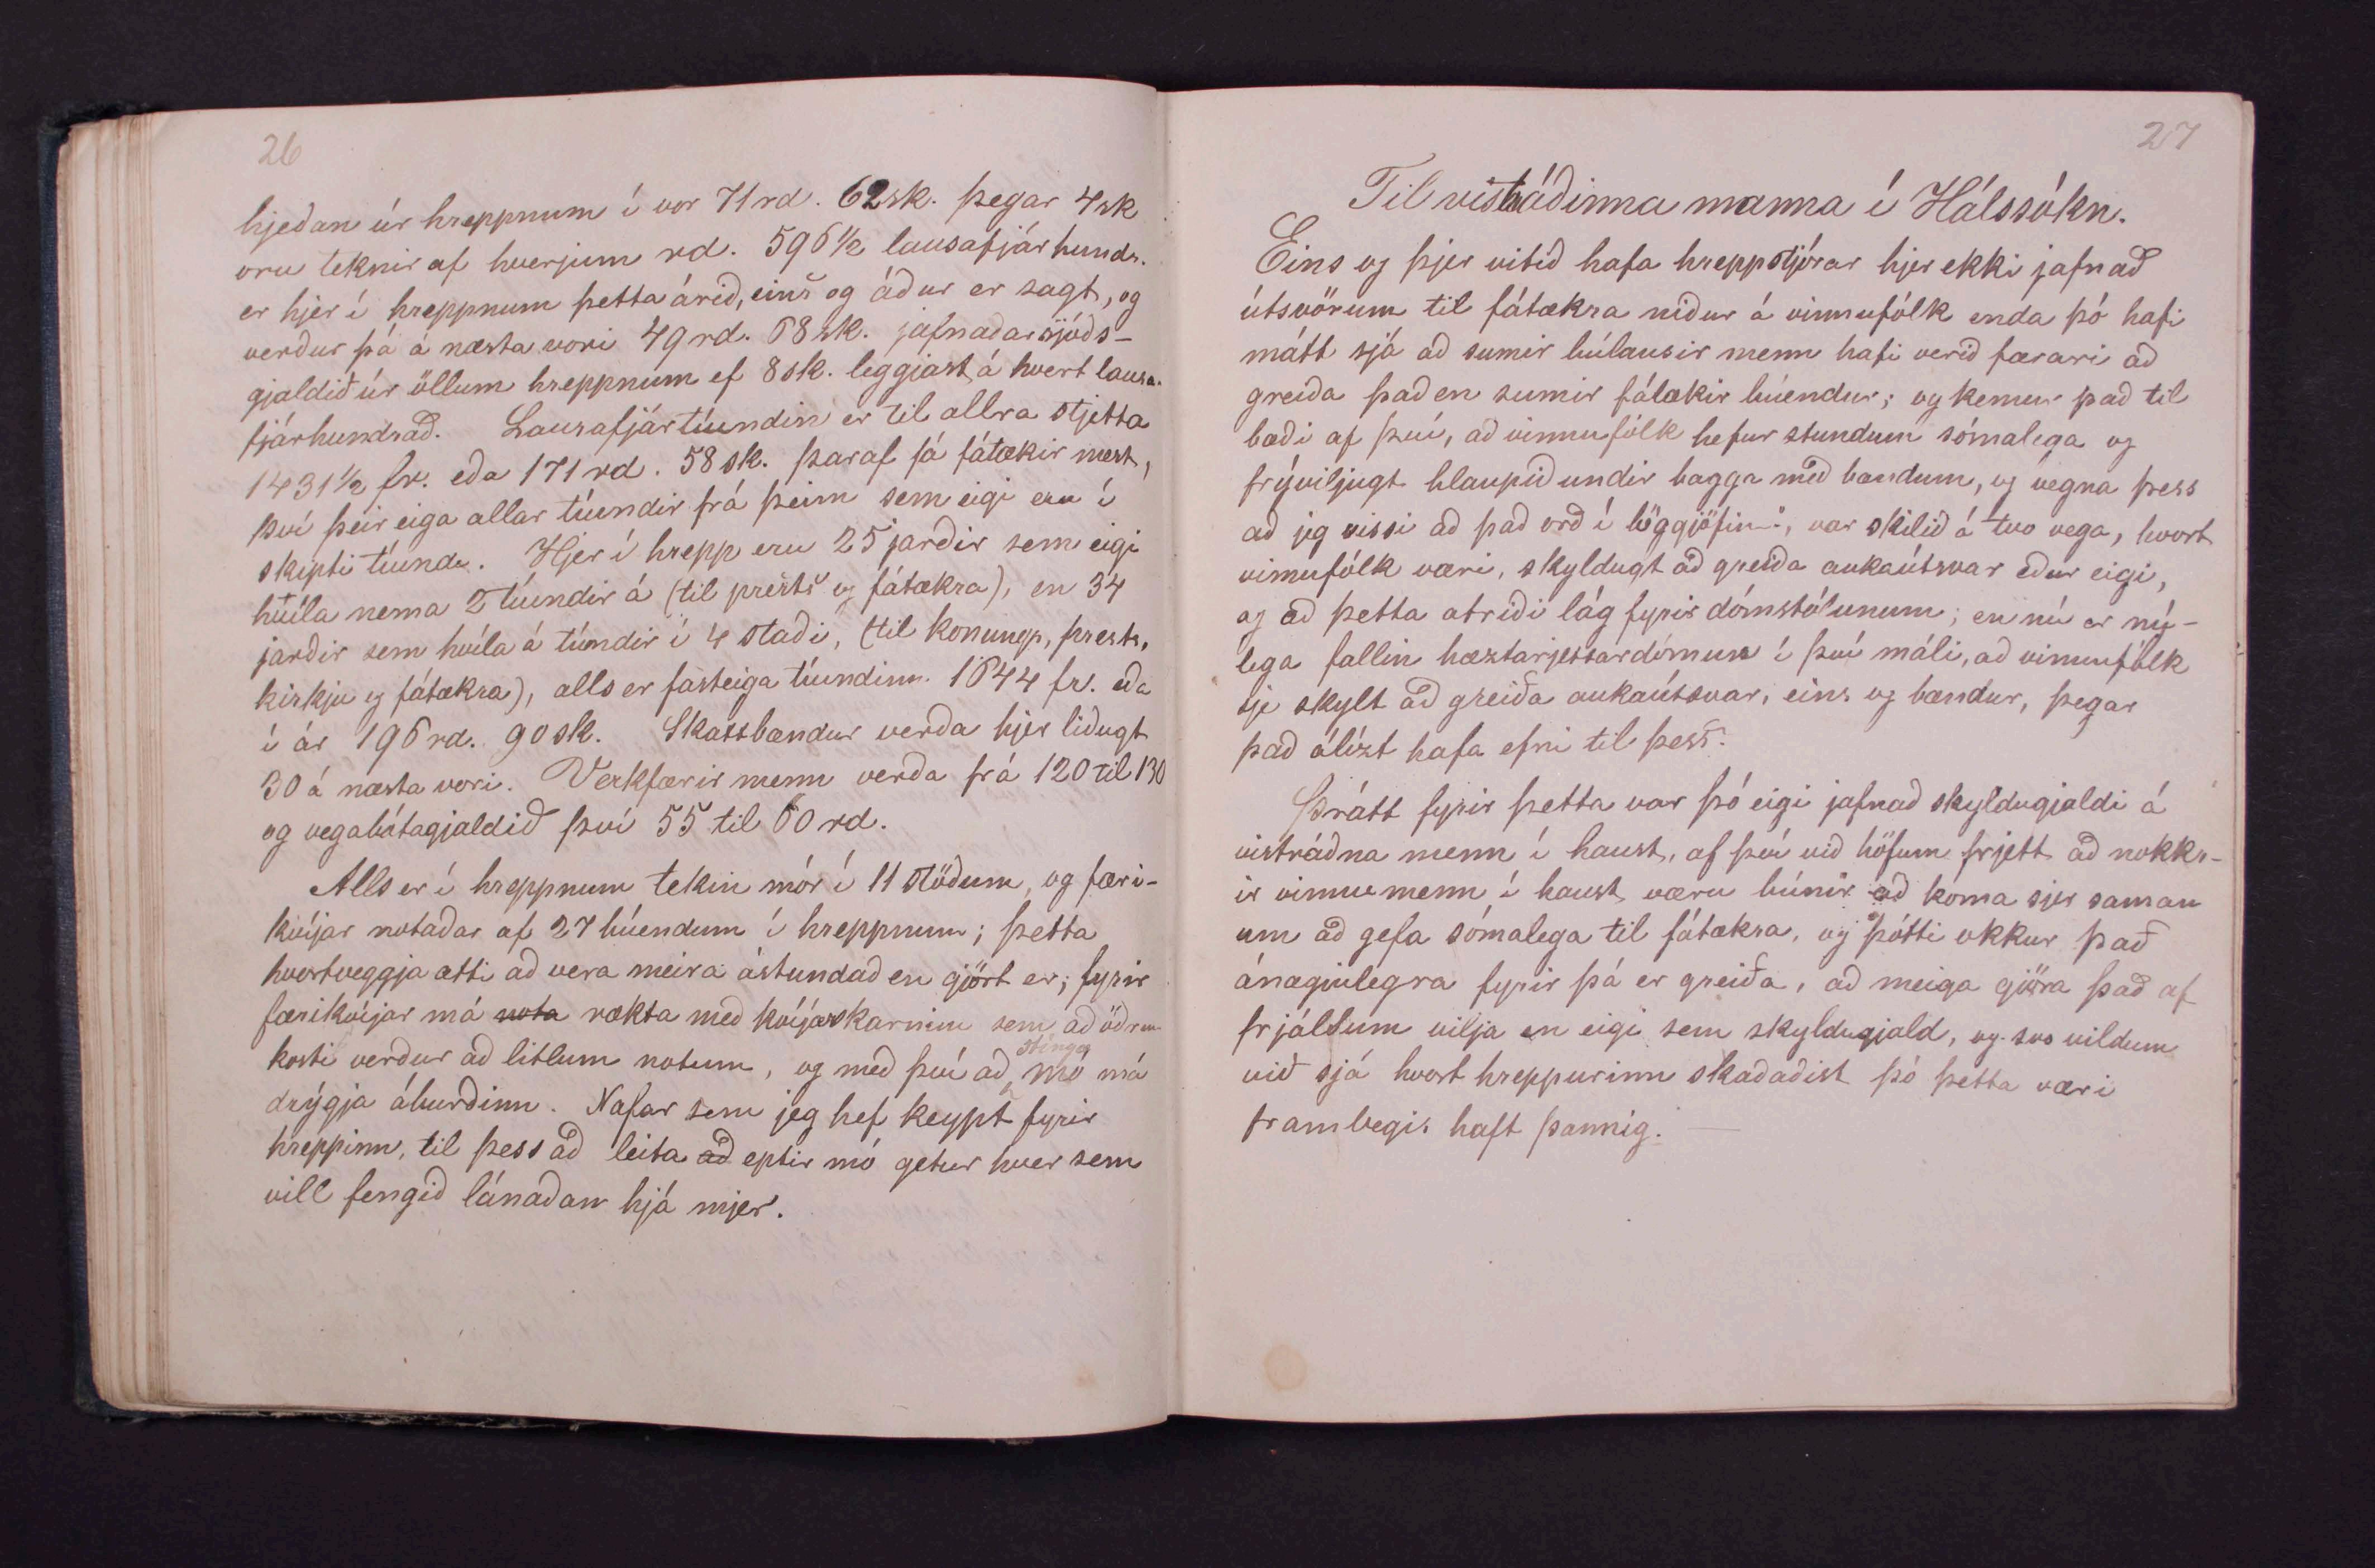 26
hjeðan úr hreppnum í vor 71 rd. 62 sk. þegar 4 sk
oru teknir af hverjum rd. 596 1/2 lausafjár hundr.
er hjer í hreppnum þetta árið, eins og áður er sagt, og
verður þá á næsta vori 49 rd. 68 sk. jafnaðarsjóðs-
gjaldið úr öllum hreppnum ef 8 sk. leggjast á hvert lausa-
fjárhundrað. Lausafjártíundin er til allra stjetta
1431 1/2 fr. eða 171 rd. 58 sk. þaraf fá fátækir mest,
því þeir eiga allar tíundir frá þeim sem eigi eru í
skiptitíund. Hjer í hrepp eru 25 jarðir sem eigi
hvíla nema 2 tíundir á (til prests og fátækra), en 34
jarðir sem hvíla á tíundir í 4 staði, (til konungs, prests,
kirkju og fátækra), alls er fasteiga tíundinn 1644 fr. eða
í ár 196 rd. 90 sk. Skattbændur verða hjer liðugt
30 á næsta vori. Verkfærir menn verða frá 120 til 130
og vegabótagjaldið því 55 til 60 rd.
Alls er í hreppnum tekin mór í 11 stöðum, og færi-
kvíjar notaðar af 27 búendum í hreppnum; þetta
hvortveggja ætti að vera meira ástundað en gjört er; fyrir
færikvíjar má nota rækta með kvíjaskarninu sem að öðrum
kosti verður að litlum notum, og með því að stinga mó má
drýgja áburðinn. Nafar sem jeg hef keypt fyrir
hreppinn, til þess að leita að eptir mó getur hver sem
vill fengið lánaðan hjá mjer.
27
Til vistráðinna manna í Hálssókn.
Eins og þjer vitið hafa hreppstjórar hjer ekki jafnað
útsvörum til fátækra niður á vinnufólk enda þó hafi
mátt sjá að sumir búlausir menn hafi verið færari að
greiða það en sumir fátækir búendur; og kemur það til
bæði af því, að vinnufólk hefur stundum sómalega og
frýviljugt hlaupið undir bagga með bændum, og vegna þess
að jeg vissi að það orð í löggjöfinni, var skilið á tvo vega, hvort
vinnufólk væri, skyldugt að greiða aukaútsvar eður eigi,
og að þetta atriði lág fyrir dómstólunum; en nú er ný-
lega fallin hæztarjettardómur í því máli, að vinnufólk
sje skylt að greiða aukaútsvar, eins og bændur, þegar
það álízt hafa efni til þess.
Þrátt fyrir þetta var þó eigi jafnað skyldugjaldi á
vistráðna menn í haust, af því við höfum frjett að nokkr-
ir vinnumenn í haust væru búnir að koma sjer saman
um að gefa sómalega til fátækra, og þótti okkur það
ánægjulegra fyrir þá er greiða, að meiga gjöra það af
frjálsum vilja en eigi sem skyldugjald, og svo vildum
við sjá hvort hreppurinn skaðaðist þó þetta væri
frambegis haft þannig.